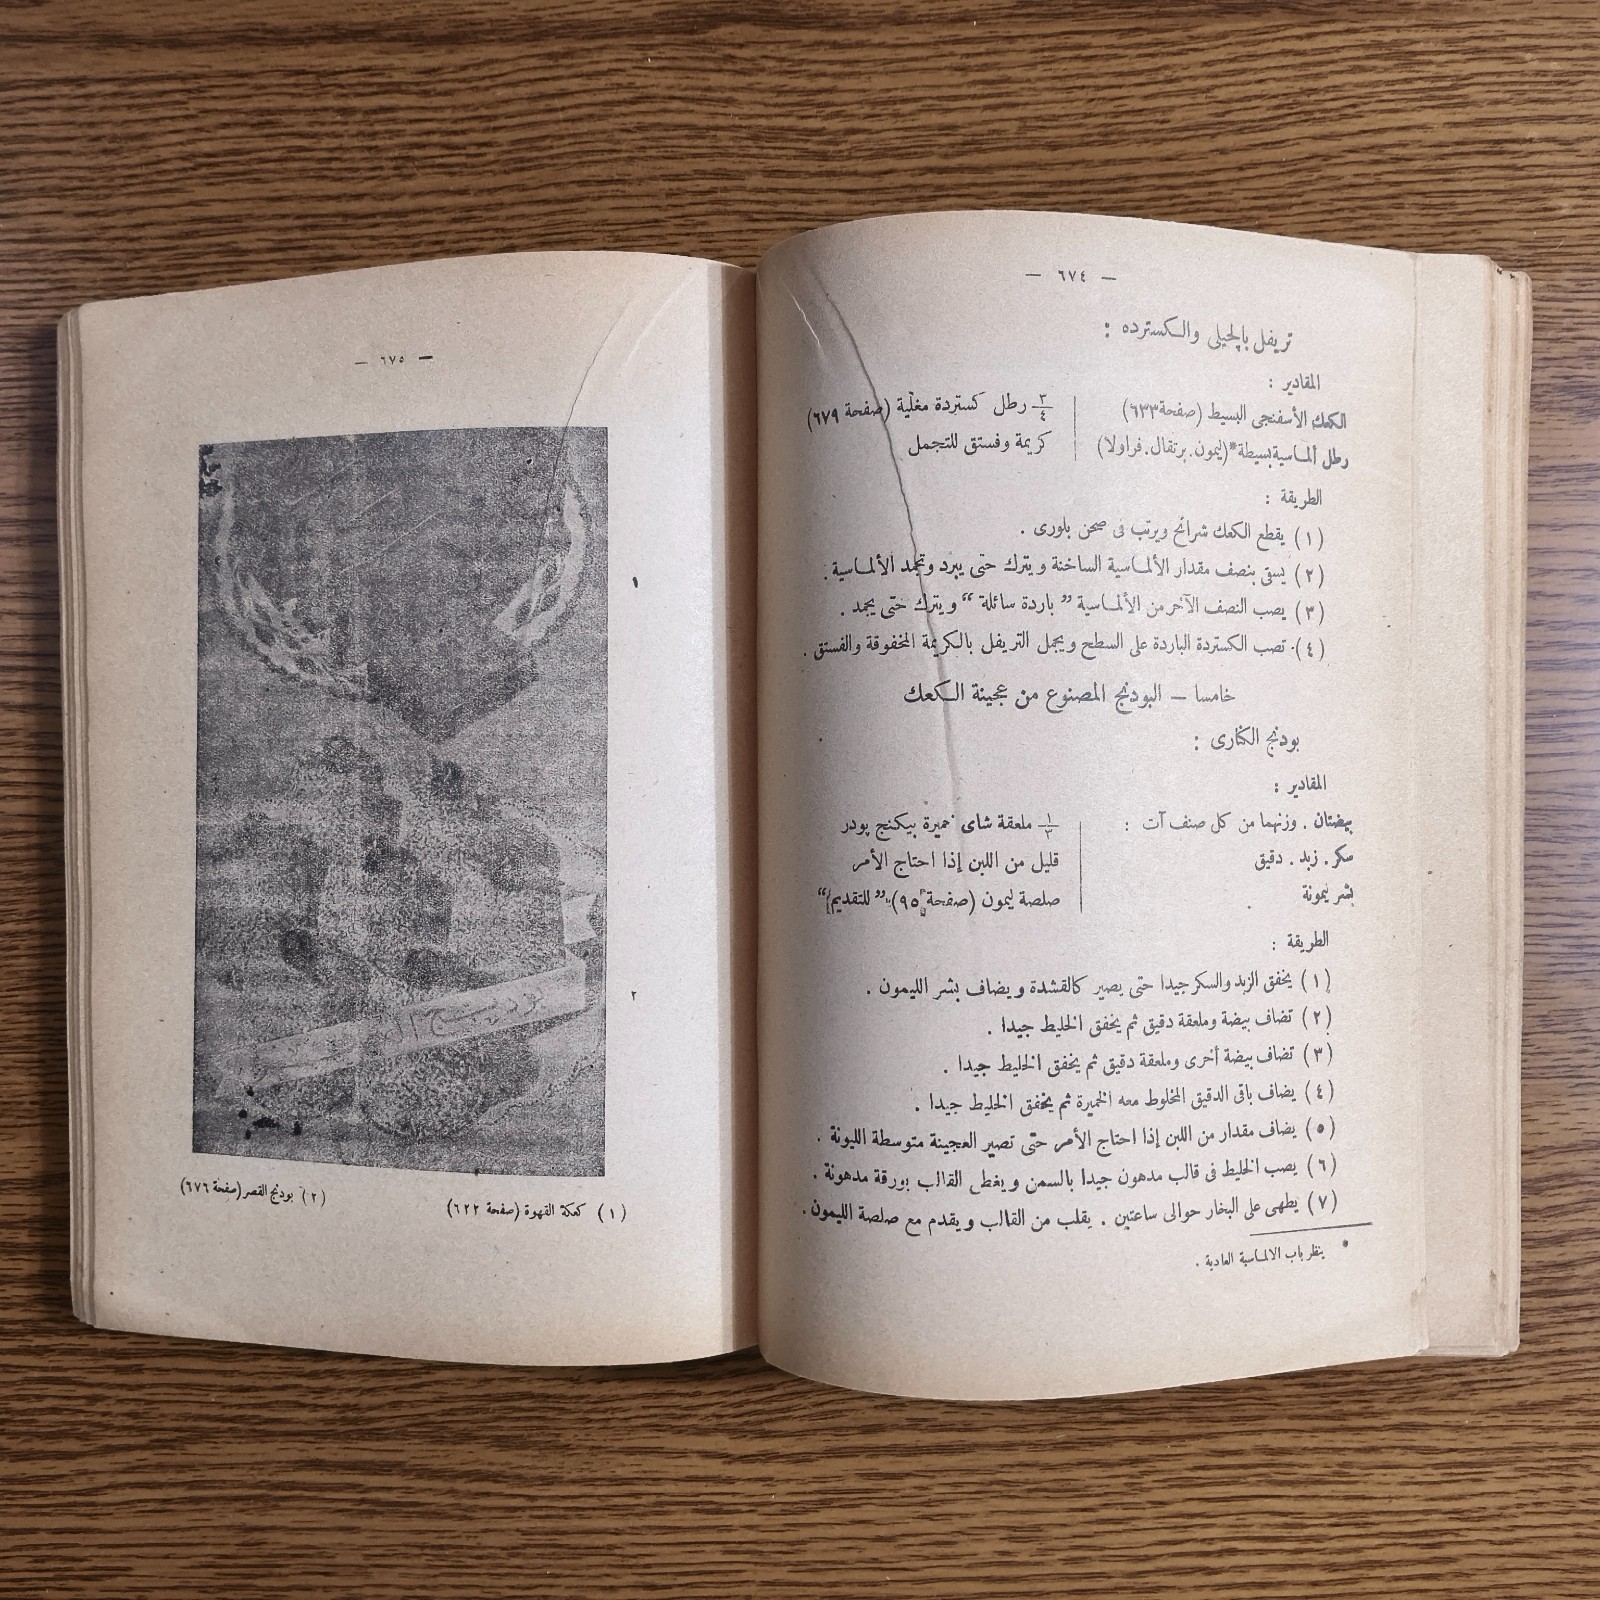 — ٦٧٤ —
تريفل بالچيلى والكسترده :
المقادير :
الكعك الأسفنجى البسيط (صفحة ٦٣٣)
رطل ألماسية بسيطة* (ليمون. برتقال. فراولا)
٣/٤ رطل كستردة مغلية (صفحة ٦٧٩)
كريمة وفستق للتجمل
الطريقة :
(١) يقطع الكعك شرائح ويرتب فى صحن بلورى .
(٢) يسقى بنصف مقدار الألماسية الساخنة ويترك حتى يبرد وتجمد الألماسية .
(٣) يصب النصف الآخر من الألماسية ” باردة سائلة “ ويترك حتى يجمد .
(٤) تصب الكستردة الباردة على السطح ويجمل التريفل بالكريمة المخفوقة والفستق .
خامسا — البودنج المصنوع من عجينة الكعك
بودنج الكنارى :
المقادير :
بيضتان . وزنهما من كل صنف آت :
سكر . زبد . دقيق
بشر ليمونة
١/٣ ملعقة شاى خميرة بيكنج پودر
قليل من اللبن إذا احتاج الأمر
صلصة ليمون (صفحة ٩٥) ” للتقديم “
الطريقة :
(١) يخفق الزبد والسكر جيدا حتى يصير كالقشدة ويضاف بشر الليمون .
(٢) تضاف بيضة وملعقة دقيق ثم يخفق الخليط جيدا .
(٣) تضاف بيضة أخرى وملعقة دقيق ثم يخفق الخليط جيدا .
(٤) يضاف باقى الدقيق المخلوط معه الخميرة ثم يخفق الخليط جيدا .
(٥) يضاف مقدار من اللبن إذا احتاج الأمر حتى تصير العجينة متوسطة الليونة .
(٦) يصب الخليط فى قالب مدهون جيدا بالسمن ويغطى القالب بورقة مدهونة .
(٧) يطهى على البخار حوالى ساعتين . يقلب من القالب ويقدم مع صلصة الليمون .
* ينظر باب الالماسية العادية .
— ٦٧٥ —
١
٢
بودينج
(١) كعكة القهوة (صفحة ٦٢٢)
(٢) بودنج القصر (صفحة ٦٧٦)